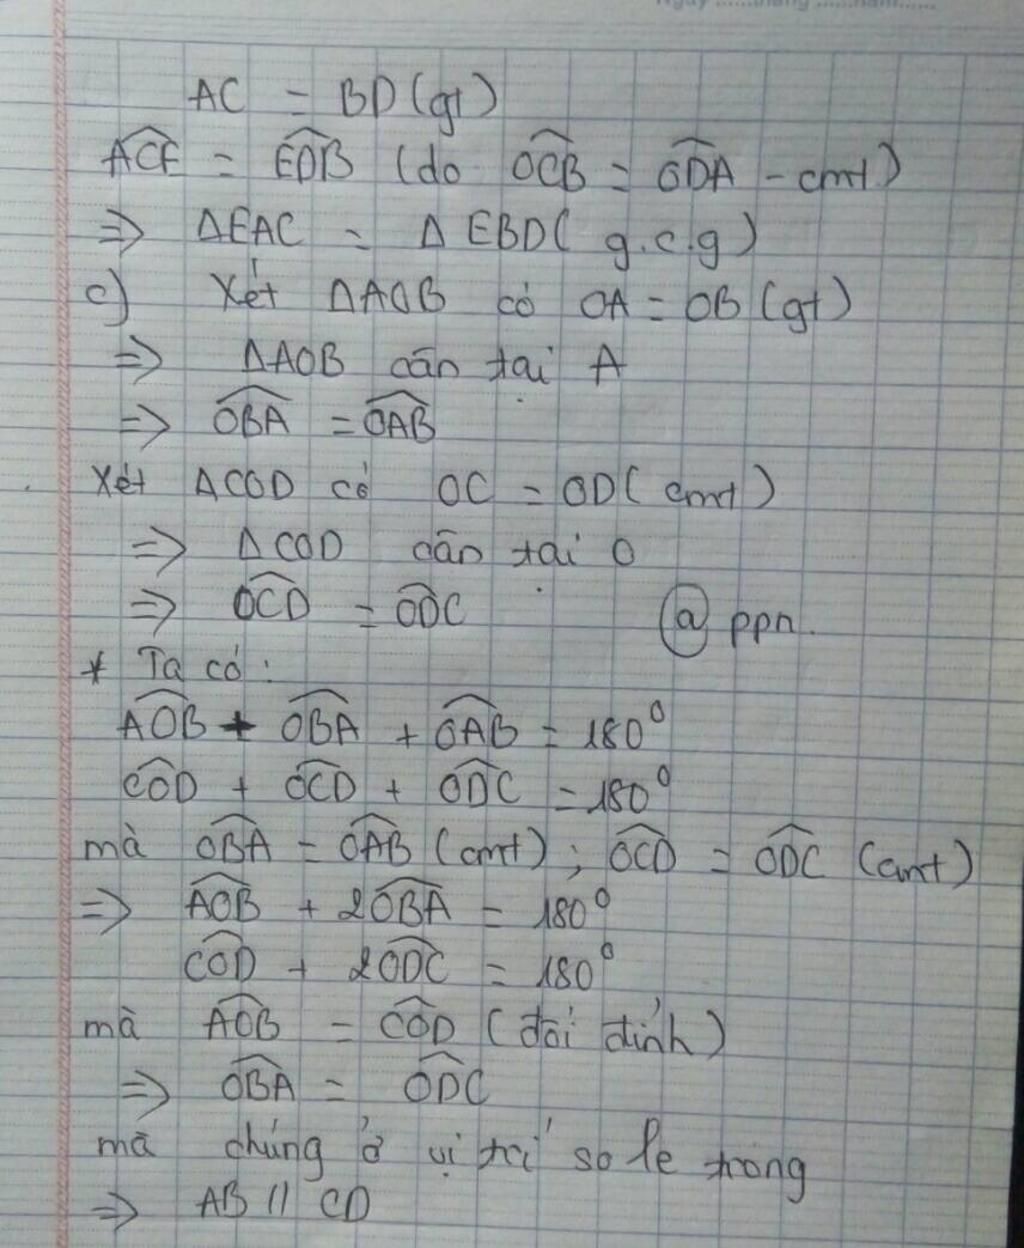 AC = BD (gt)
ACE = EDB (do OCB = ODA - cmt)
=> ΔEAC = ΔEBD (g.c.g)
c) Xét ΔAOB có OA = OB (gt)
=> ΔAOB cân tại A
=> OBA = OAB
Xét ΔCOD có OC = OD (cmt)
=> ΔCOD cân tại O
=> OCD = ODC
@ ppn.
* Ta có:
AOB + OBA + OAB = 180°
COD + OCD + ODC = 180°
mà OBA = OAB (cmt); OCD = ODC (cmt)
=> AOB + 2OBA = 180°
COD + 2ODC = 180°
mà AOB = COD (đối đỉnh)
=> OBA = ODC
mà chúng ở vị trí so le trong
=> AB // CD